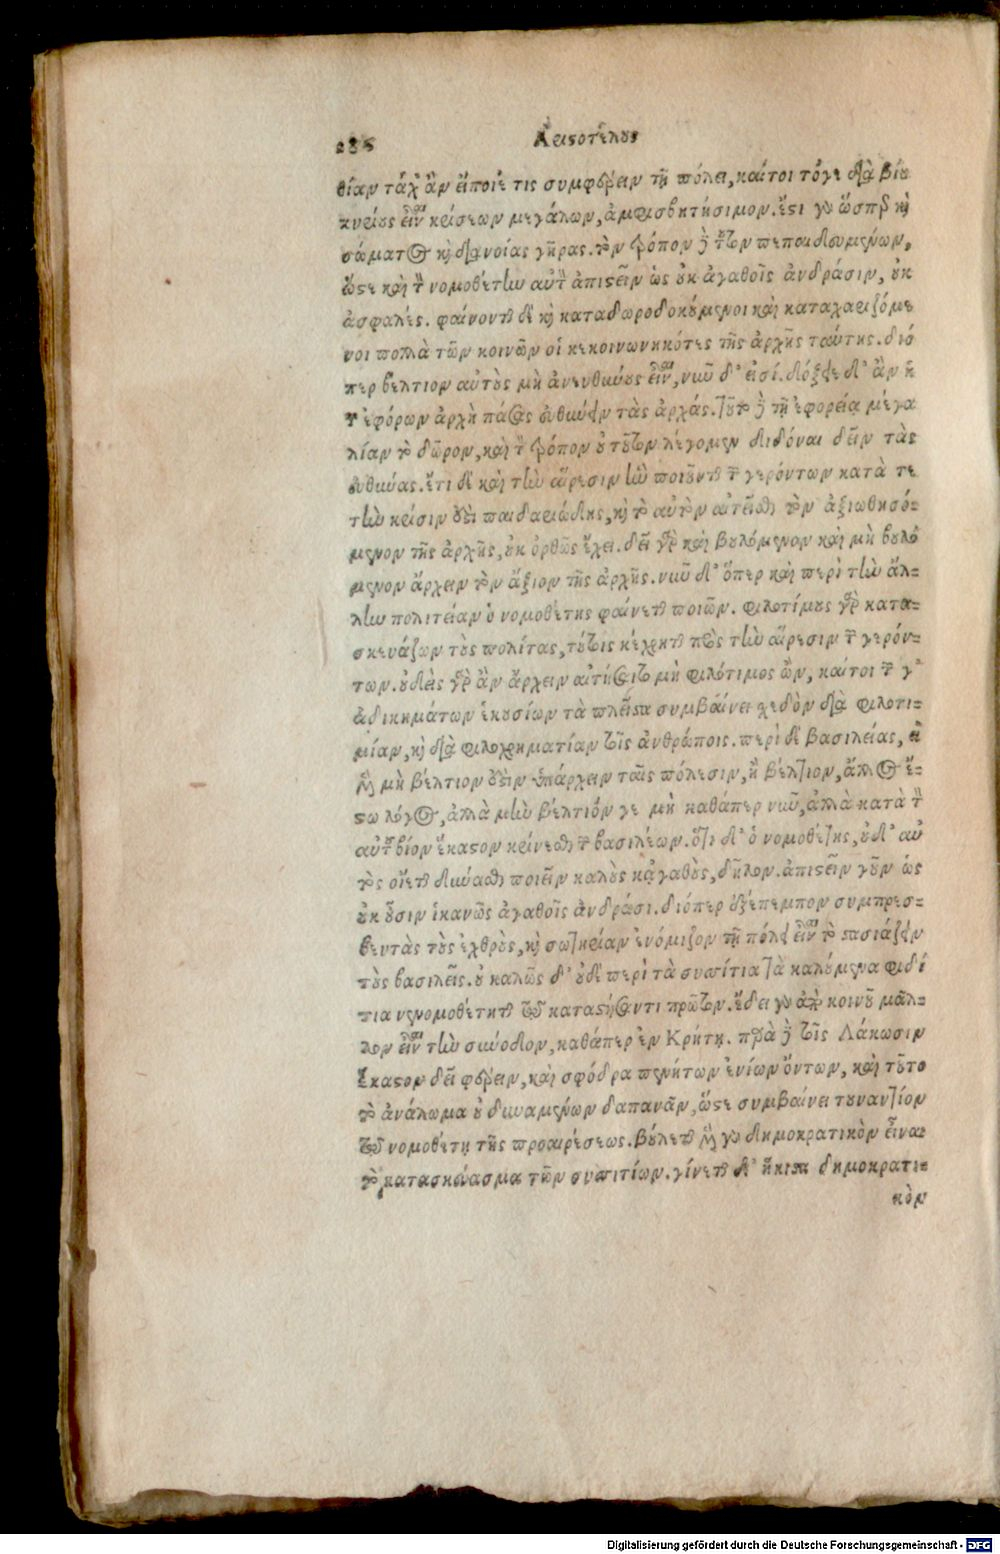 236 Ἀριστοτέλους
θίαν τάχ' ἂν εἴποιέ τις συμφέρειν τῇ πόλει, καίτοι τόγε διὰ βίου
κυρίους εἶναι κρίσεων μεγάλων, ἀμφισβητήσιμον. ἔστι γὰρ ὥσπερ καὶ
σώματος καὶ διανοίας γῆρας. τὸν τρόπον δὲ τοῦτον πεπαιδευμένων,
ὥστε καὶ τὸν νομοθέτην αὐτὸν ἀπιστεῖν ὡς οὐκ ἀγαθοῖς ἀνδράσιν, οὐκ
ἀσφαλές. φαίνονται δὲ καὶ καταδωροδοκούμενοι καὶ καταχαριζόμε
νοι πολλὰ τῶν κοινῶν οἱ κεκοινωνηκότες τῆς ἀρχῆς ταύτης. διό
περ βέλτιον αὐτοὺς μὴ ἀνευθύνους εἶναι, νῦν δ' εἰσί. δόξειε δ' ἂν ἡ
τῶν ἐφόρων ἀρχὴ πάσας εὐθύνειν τὰς ἀρχάς. τοῦτο δὲ τῇ ἐφορείᾳ μέγα
λίαν τὸ δῶρον, καὶ τὸν τρόπον οὐ τοῦτον λέγομεν διδόναι δεῖν τὰς
εὐθύνας. ἔτι δὲ καὶ τὴν αἵρεσιν ἣν ποιοῦνται τῶν γερόντων κατά τε
τὴν κρίσιν ἐστὶ παιδαριώδης, καὶ τὸ αὐτὸν αἰτεῖσθαι τὸν ἀξιωθησό-
μενον τῆς ἀρχῆς, οὐκ ὀρθῶς ἔχει. δεῖ γὰρ καὶ βουλόμενον καὶ μὴ βουλό
μενον ἄρχειν τὸν ἄξιον τῆς ἀρχῆς. νῦν δ' ὅπερ καὶ περὶ τὴν ἄλ-
λην πολιτείαν ὁ νομοθέτης φαίνεται ποιῶν. φιλοτίμους γὰρ κατα-
σκευάζων τοὺς πολίτας, τούτοις κέχρηται πρὸς τὴν αἵρεσιν τῶν γερόν-
των. οὐδεὶς γὰρ ἂν ἄρχειν αἰτήσαιτο μὴ φιλότιμος ὢν, καίτοι τῶν γ'
ἀδικημάτων ἑκουσίων τὰ πλεῖστα συμβαίνει σχεδὸν διὰ φιλοτι-
μίαν, καὶ διὰ φιλοχρηματίαν τοῖς ἀνθρώποις. περὶ δὲ βασιλείας, εἰ
μὲν μὴ βέλτιον ἐστὶν ὑπάρχειν ταῖς πόλεσιν, ἢ βέλτιον, ἄλλος ἔ-
στω λόγος, ἀλλὰ μὴν βέλτιόν γε μὴ καθάπερ νῦν, ἀλλὰ κατὰ τὸν
αὐτῶν βίον ἕκαστον κρίνεσθαι τῶν βασιλέων. ὅτι δ' ὁ νομοθέτης, οὐδ' αὐ
τὸς οἴεται δύνασθαι ποιεῖν καλοὺς κἀγαθοὺς, δῆλον. ἀπιστεῖν γοῦν ὡς
οὐκ οὖσιν ἱκανῶς ἀγαθοῖς ἀνδράσι. διόπερ ἐξέπεμπον συμπρεσ-
βευτὰς τοὺς ἐχθροὺς, καὶ σωτηρίαν ἐνόμιζον τῇ πόλει εἶναι τὸ στασιάζειν
τοὺς βασιλεῖς. οὐ καλῶς δ' οὐδὲ περὶ τὰ συσσίτια τὰ καλούμενα φιδί
τια νενομοθέτηται τῷ καταστήσαντι πρῶτον. ἔδει γὰρ ἀπὸ κοινοῦ μᾶλ-
λον εἶναι τὴν σύνοδον, καθάπερ ἐν Κρήτῃ. παρὰ δὲ τοῖς Λάκωσιν
ἕκαστον δεῖ φέρειν, καὶ σφόδρα πενήτων ἐνίων ὄντων, καὶ τοῦτο
τὸ ἀνάλωμα οὐ δυναμένων δαπανᾶν, ὥστε συμβαίνει τοὐναντίον
τῷ νομοθέτῃ τῆς προαιρέσεως. βούλεται μὲν γὰρ δημοκρατικὸν εἶναι
τὸ κατασκεύασμα τῶν συσσιτίων. γίνεται δ' ἥκιστα δημοκρατι-
κὸν
Digitalisierung gefördert durch die Deutsche Forschungsgemeinschaft - DFG